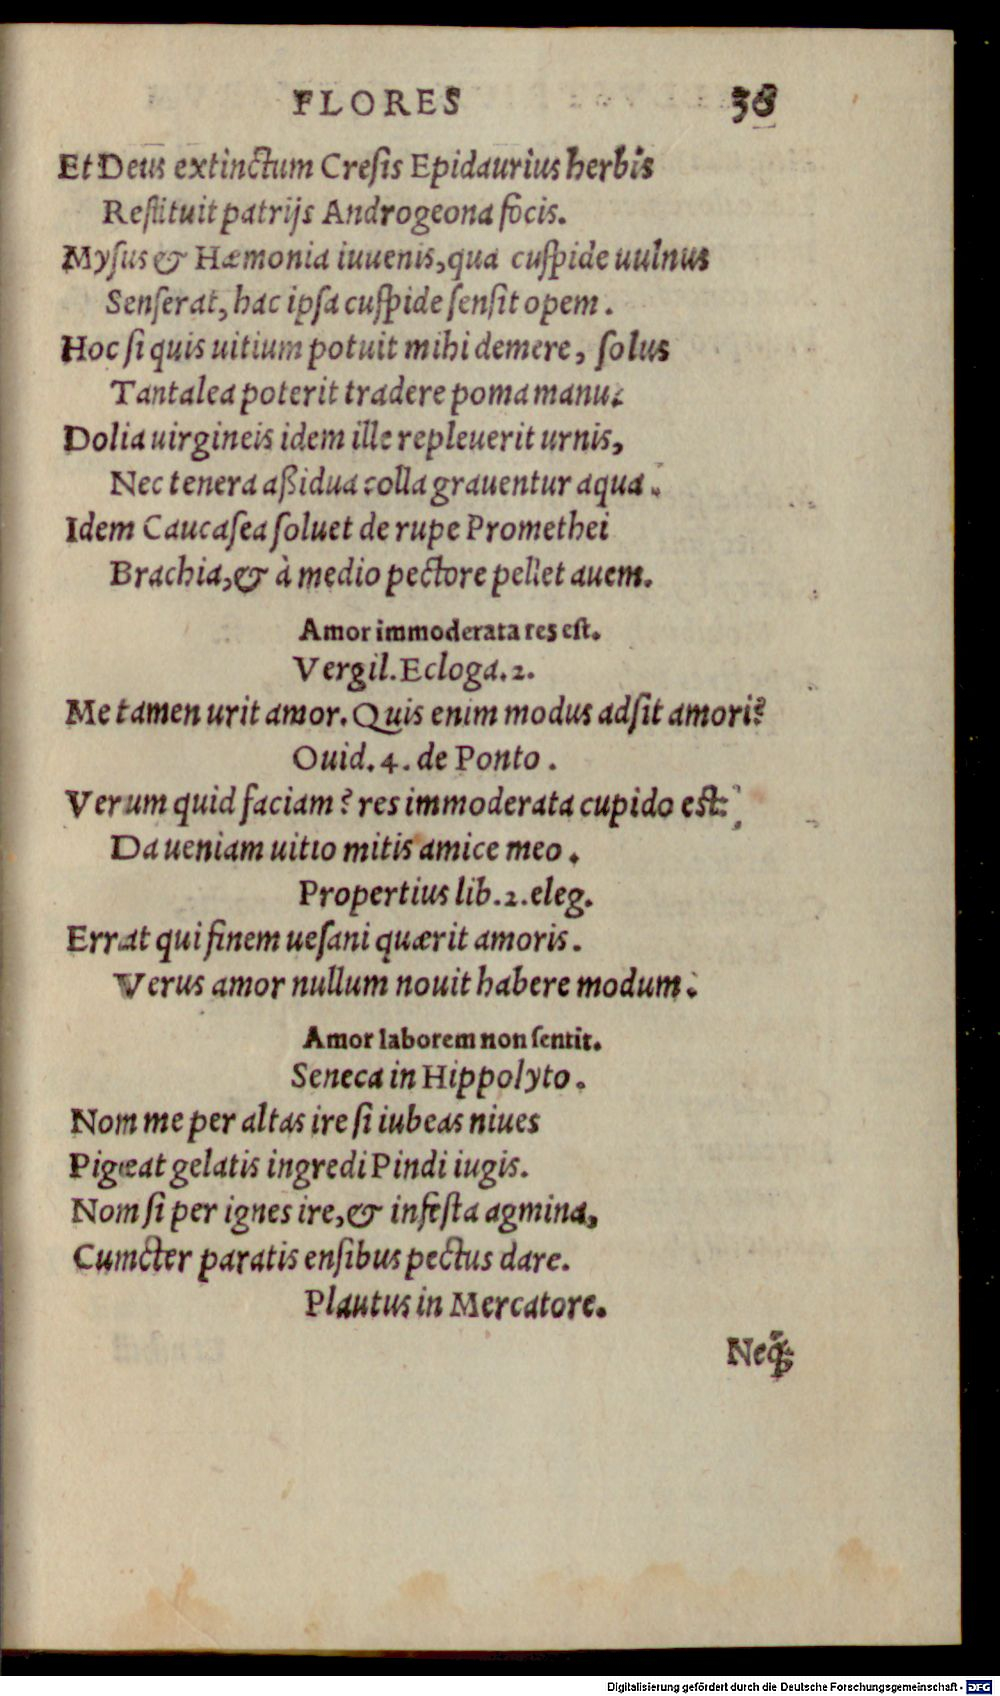 FLORES 38
Et Deus extinctum Cresis Epidaurius herbis
Restituit patrijs Androgeona focis.
Mysus & Hæmonia iuuenis, qua cuspide uulnus
Senserat, hac ipsa cuspide sensit opem.
Hoc si quis uitium potuit mihi demere, solus
Tantalea poterit tradere poma manu.
Dolia uirgineis idem ille repleuerit urnis,
Nec tenera aßidua colla grauentur aqua.
Idem Caucasea soluet de rupe Promethei
Brachia, & à medio pectore pellet auem.
Amor immoderata res est.
Vergil. Ecloga. 2.
Me tamen urit amor. Quis enim modus adsit amori?
Ouid. 4. de Ponto.
Verum quid faciam? res immoderata cupido est:
Da ueniam uitio mitis amice meo.
Propertius lib. 2. eleg.
Errat qui finem uesani quærit amoris.
Verus amor nullum nouit habere modum.
Amor laborem non sentit.
Seneca in Hippolyto.
Nom me per altas ire si iubeas niues
Pigæat gelatis ingredi Pindi iugis.
Nom si per ignes ire, & infesta agmina,
Cumcter paratis ensibus pectus dare.
Plautus in Mercatore.
Neq;
Digitalisierung gefördert durch die Deutsche Forschungsgemeinschaft - DFG